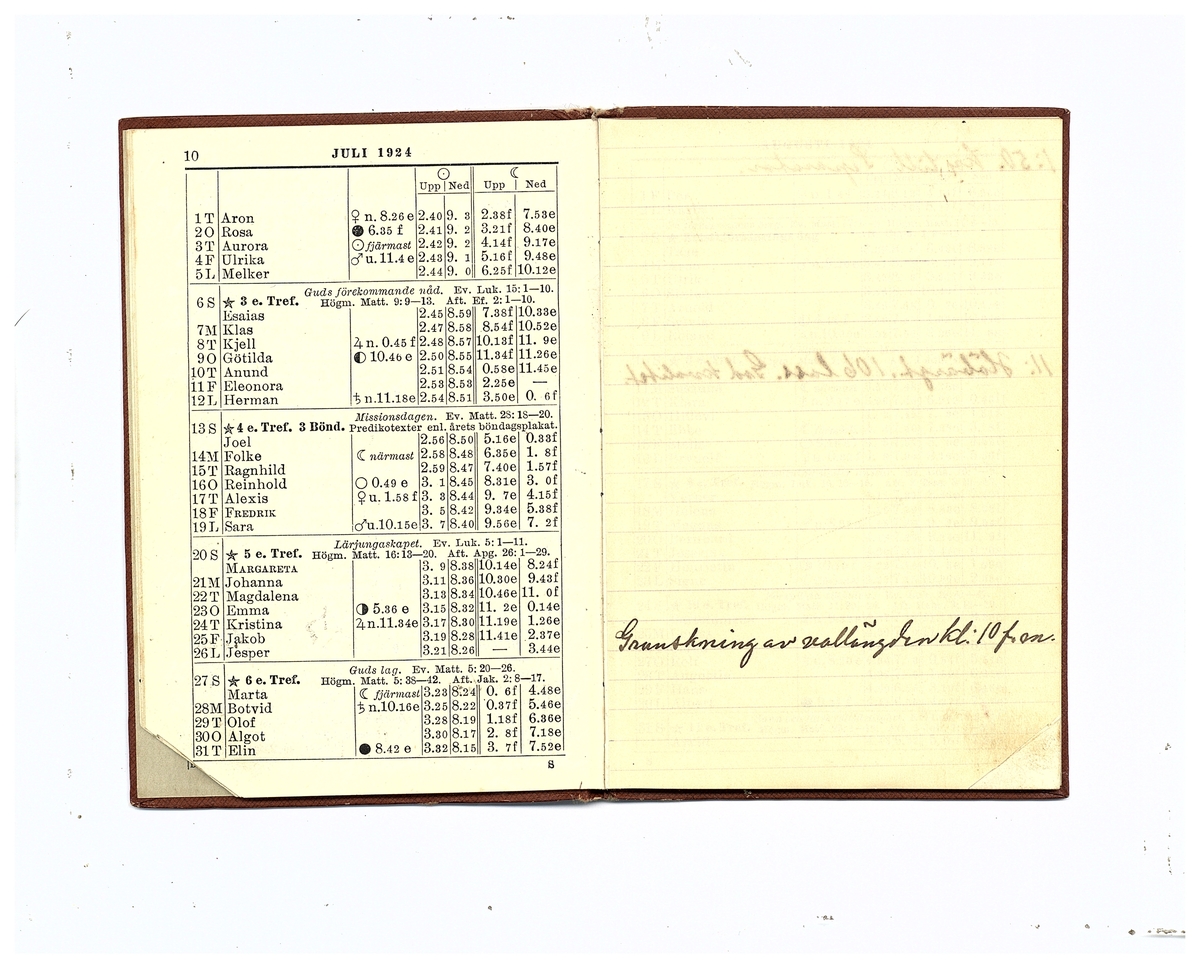 10 JULI 1924
☉ ☾
Upp Ned Upp Ned
1 T Aron ♀ n. 8.26 e 2.40 9. 3 2.38f 7.53e
2 O Rosa 6.35 f 2.41 9. 2 3.21f 8.40e
3 T Aurora ☉ fjärmast 2.42 9. 2 4.14f 9.17e
4 F Ulrika ♂ u. 11.4 e 2.43 9. 1 5.16f 9.48e
5 L Melker 2.44 9. 0 6.25f 10.12e
Guds förekommande nåd. Ev. Luk. 15: 1—10.
6 S ★ 3 e. Tref. Högm. Matt. 9: 9—13. Aft. Ef. 2: 1—10.
Esaias 2.45 8.59 7.38f 10.33e
7 M Klas 2.47 8.58 8.54f 10.52e
8 T Kjell ♃ n. 0.45 f 2.48 8.57 10.13f 11. 9e
9 O Götilda ◐ 10.46 e 2.50 8.55 11.34f 11.26e
10 T Anund 2.51 8.54 0.58e 11.45e
11 F Eleonora 2.53 8.53 2.25e —
12 L Herman ♄ n. 11.18e 2.54 8.51 3.50e 0. 6f
Missionsdagen. Ev. Matt. 28: 18—20.
13 S ★ 4 e. Tref. 3 Bönd. Predikotexter enl. årets böndagsplakat.
Joel 2.56 8.50 5.16e 0.33f
14 M Folke ☾ närmast 2.58 8.48 6.35e 1. 8f
15 T Ragnhild 2.59 8.47 7.40e 1.57f
16 O Reinhold ○ 0.49 e 3. 1 8.45 8.31e 3. 0f
17 T Alexis ♀ u. 1.58 f 3. 3 8.44 9. 7e 4.15f
18 F FREDRIK 3. 5 8.42 9.34e 5.38f
19 L Sara ♂ u. 10.15e 3. 7 8.40 9.56e 7. 2f
Lärjungaskapet. Ev. Luk. 5: 1—11.
20 S ★ 5 e. Tref. Högm. Matt. 16: 13—20. Aft. Apg. 26: 1—29.
MARGARETA 3. 9 8.38 10.14e 8.24f
21 M Johanna 3.11 8.36 10.30e 9.43f
22 T Magdalena 3.13 8.34 10.46e 11. 0f
23 O Emma ◑ 5.36 e 3.15 8.32 11. 2e 0.14e
24 T Kristina ♃ n. 11.34e 3.17 8.30 11.19e 1.26e
25 F Jakob 3.19 8.28 11.41e 2.37e
26 L Jesper 3.21 8.26 — 3.44e
Guds lag. Ev. Matt. 5: 20—26.
27 S ★ 6 e. Tref. Högm. Matt. 5: 38—42. Aft. Jak. 2: 8—17.
Marta ☾ fjärmast 3.23 8.24 0. 6f 4.48e
28 M Botvid ♄ n. 10.16e 3.25 8.22 0.37f 5.46e
29 T Olof 3.28 8.19 1.18f 6.36e
30 O Algot 3.30 8.17 2. 8f 7.18e
31 T Elin ● 8.42 e 3.32 8.15 3. 7f 7.52e
8
Granskning av vallängden kl: 10 f. m.